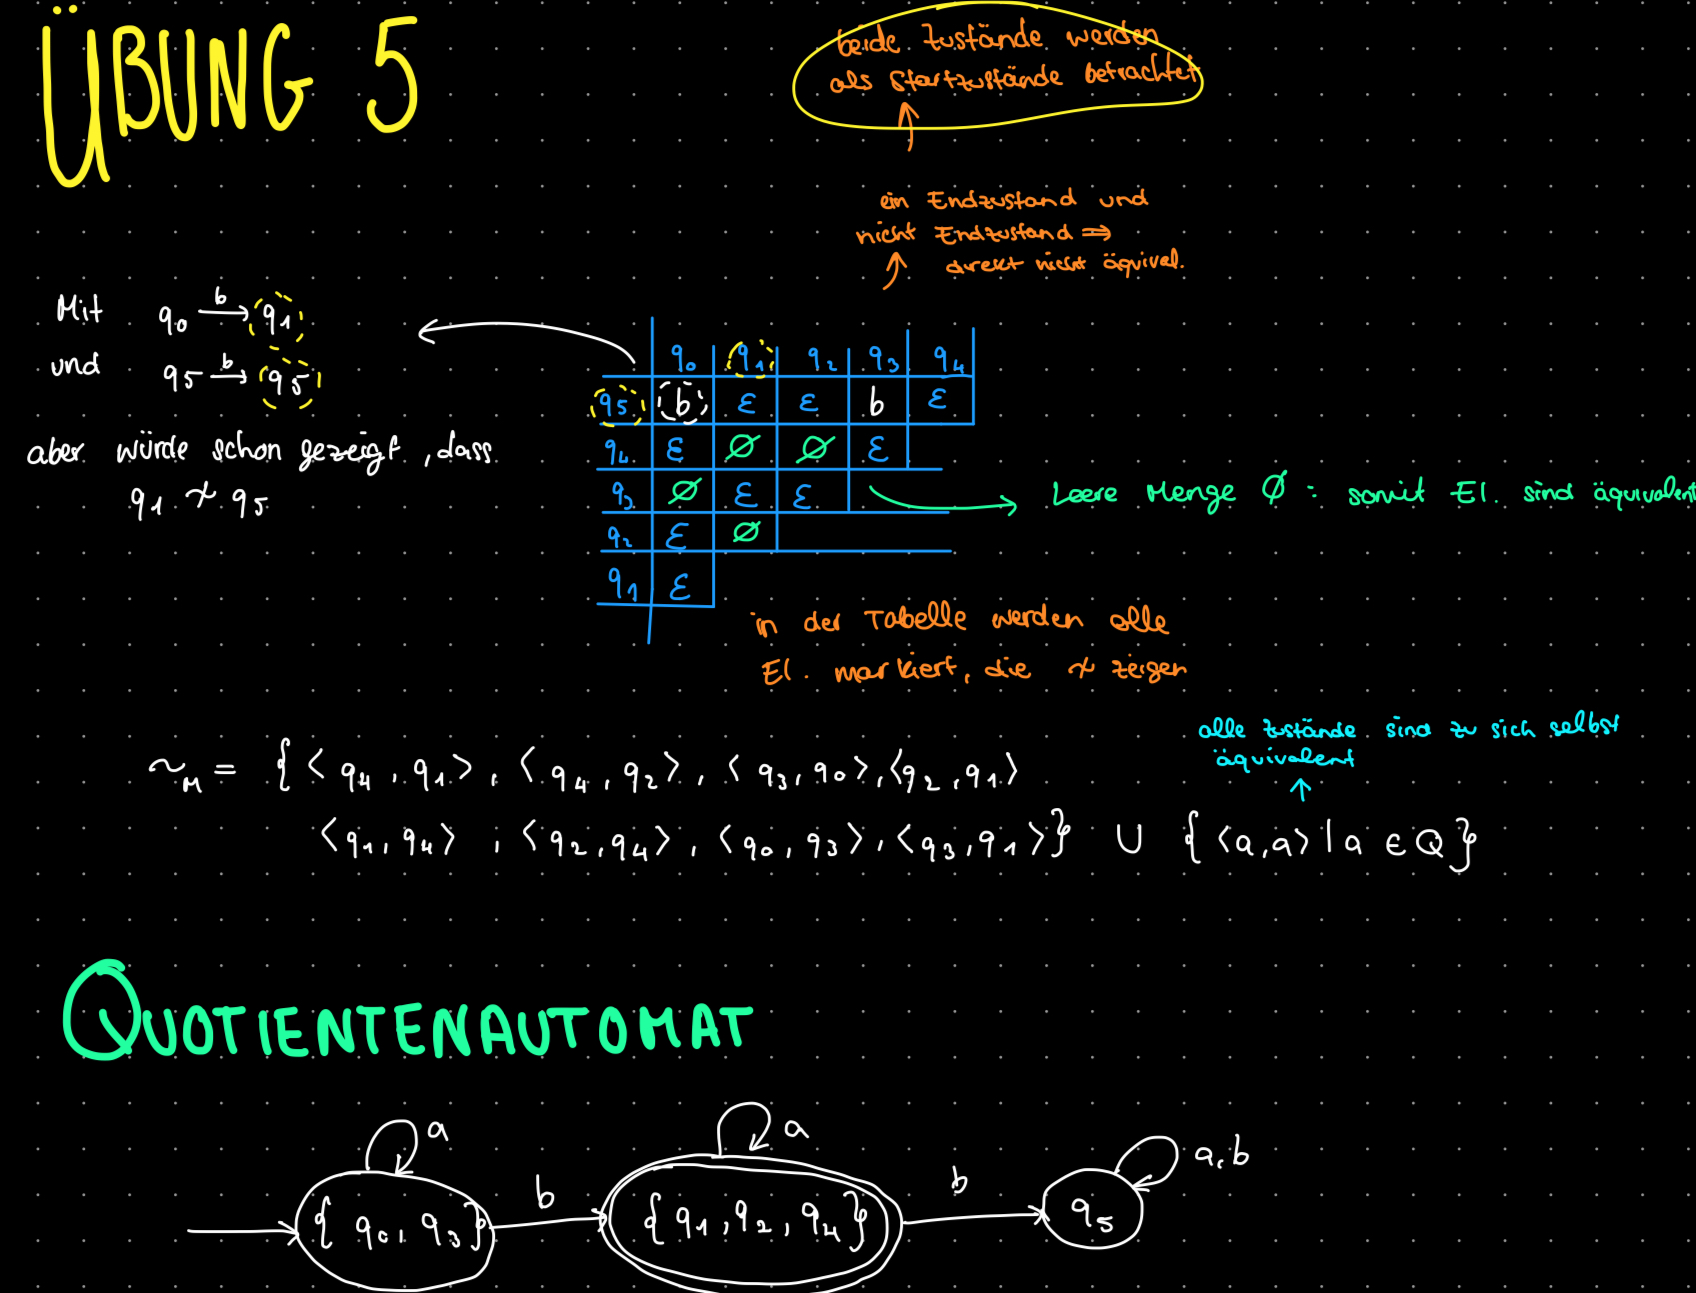 ÜBUNG 5
beide Zustände werden
als Startzustände betrachtet
ein Endzustand und
nicht Endzustand ⇒
direkt nicht äquival.
Mit q₀ →b q₁
und q₅ →b q₅
aber würde schon gezeigt, dass
q₁ ≁ q₅
q₀ q₁ q₂ q₃ q₄
q₅ b ε ε b ε
q₄ ε ∅ ∅ ε
q₃ ∅ ε ε
q₂ ε ∅
q₁ ε
Leere Menge ∅ : somit El. sind äquivalent
in der Tabelle werden alle
El. markiert, die ≁ zeigen
alle Zustände sind zu sich selbst
äquivalent
~M = {⟨q₄, q₁⟩, ⟨q₄, q₂⟩, ⟨q₃, q₀⟩, ⟨q₂, q₁⟩
⟨q₁, q₄⟩, ⟨q₂, q₄⟩, ⟨q₀, q₃⟩, ⟨q₃, q₁⟩} ∪ {⟨a,a⟩ | a ∈ Q}
QUOTIENTENAUTOMAT
a a a,b
{q₀, q₃} b {q₁, q₂, q₄} b q₅